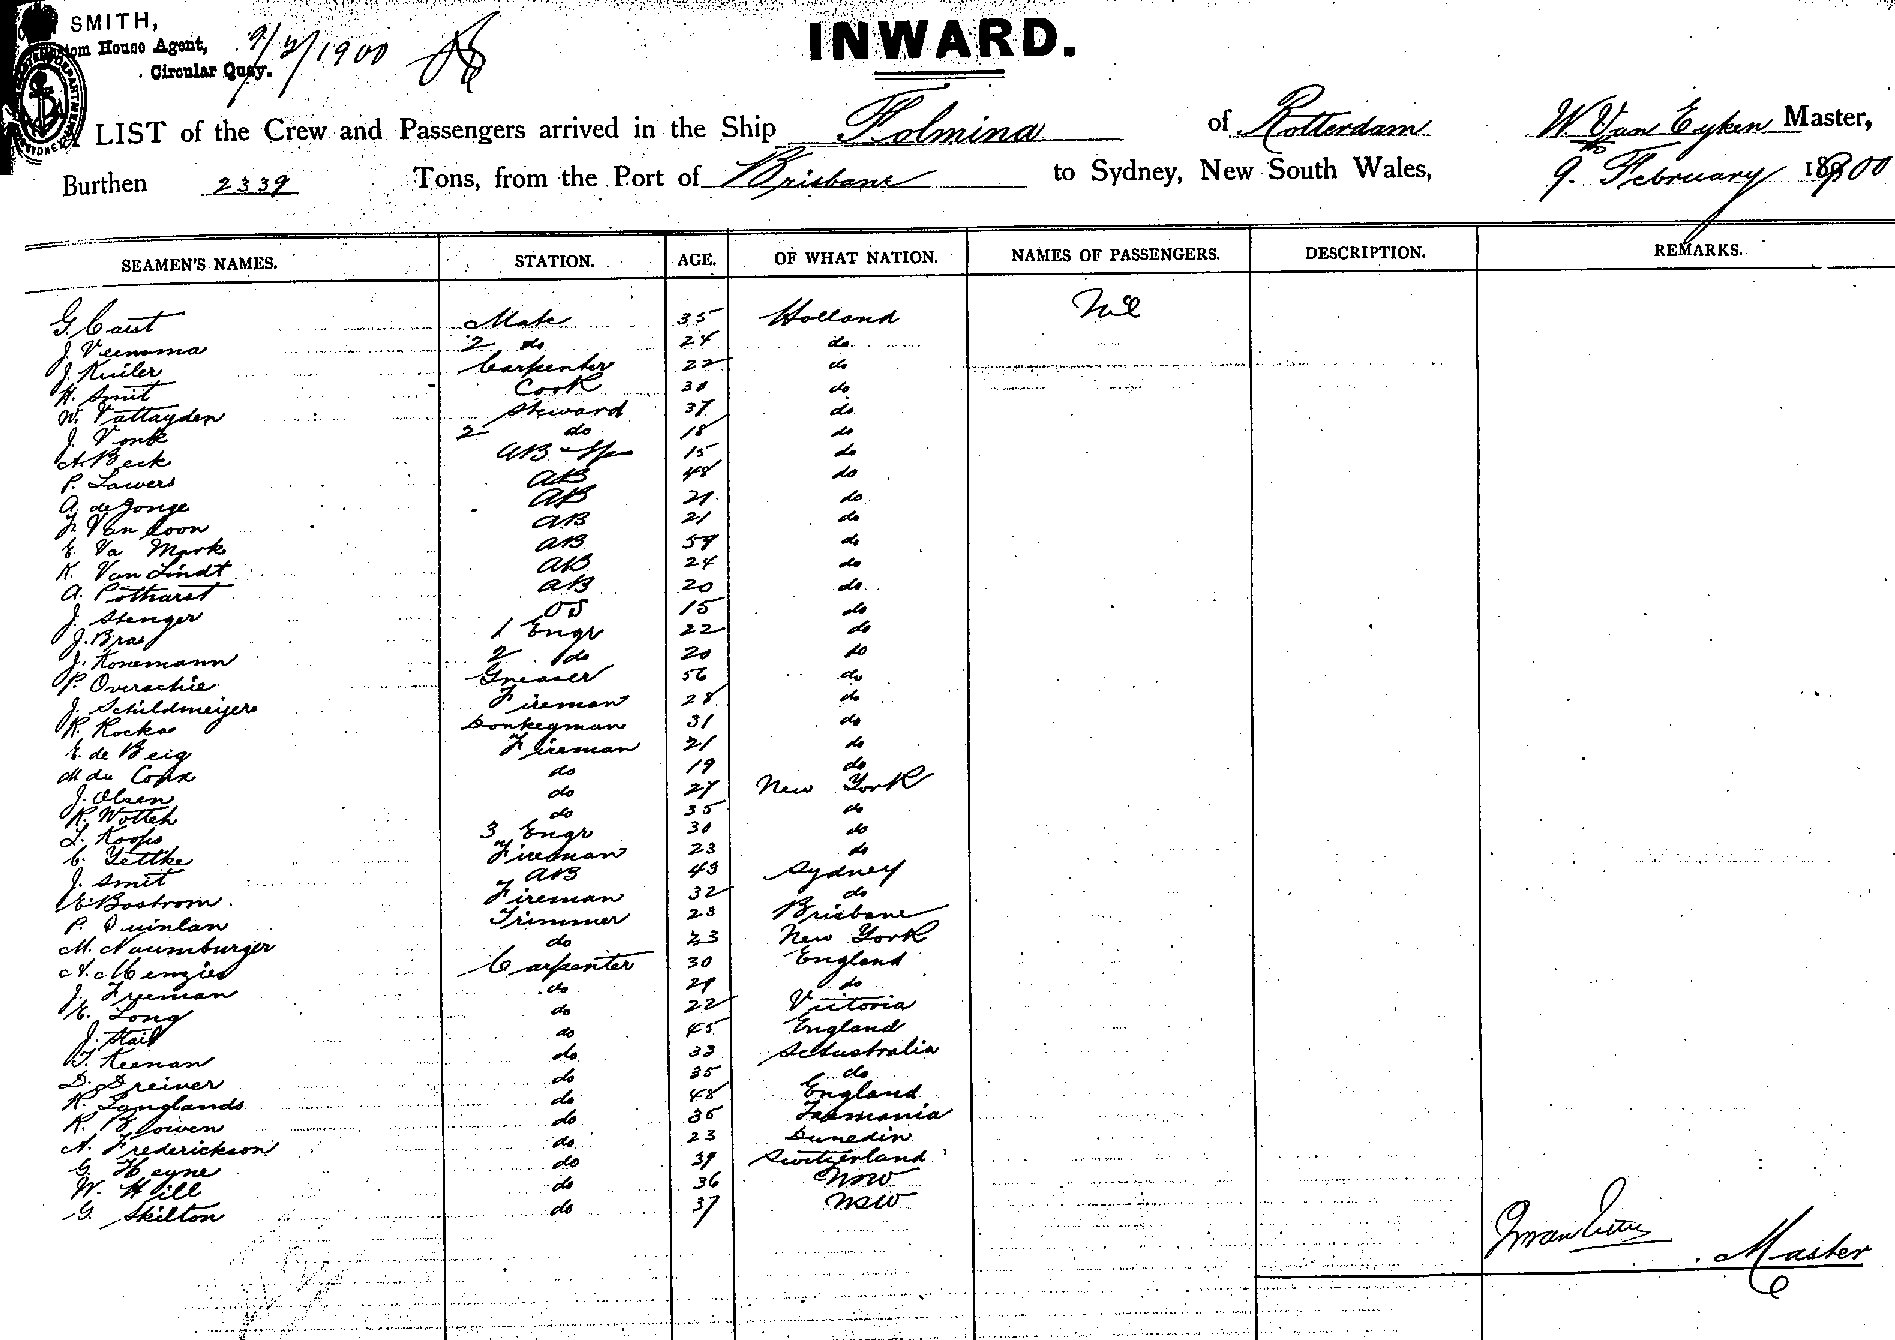 SMITH,
Custom House Agent,
Circular Quay.
9/2/1900
INWARD.
LIST of the Crew and Passengers arrived in the Ship Folmina of Rotterdam W Van Eyken Master,
Burthen 2339 Tons, from the Port of Brisbane to Sydney, New South Wales, 9. February 1900
SEAMEN'S NAMES. STATION. AGE. OF WHAT NATION. NAMES OF PASSENGERS. DESCRIPTION. REMARKS.
G. Caut Mate 35 Holland Nil
J Veenoma 2 do 24 do
J Kuiler Carpenter 22 do
H. Smit Cook 30 do
W. Vattayden Steward 37 do
J. Vonk 2 do 18 do
A. Beck AB 15 do
P. Lawers AB 48 do
A. de Jonge AB 21 do
J. Van Loon AB 21 do
E. Va Mark AB 59 do
K. Van Lindt AB 24 do
A. Potharst AB 20 do
J. Stenger OS 15 do
J. Bras 1 Engr 22 do
J. Konemann 2 do 20 do
P. Overachie Greaser 56 do
J. Schildmeijers Fireman 28 do
R. Rocka Donkeyman 31 do
E. de Beig Fireman 21 do
M du Conx do 19 do
J. Olsen do 27 New York
R. Wotteh do 35 do
L. Koops 3 Engr 30 do
C. Gettke Fireman 23 do
J. Smit AB 43 Sydney
E Bostrom Fireman 32 do
P. Quinlan Trimmer 23 Brisbane
M. Naumburger do 23 New York
A. Menzies Carpenter 30 England
J. Freeman do 29 do
E. Long do 22 Victoria
J. Hail do 45 England
T. Keenan do 33 S Australia
D. Dreiver do 35 do
R. Langlands do 48 England
R. Blowen do 35 Tasmania
A. Frederickson do 23 Dunedin
G. Heyne do 39 Switzerland
W. Hill do 36 NSW
G. Skilton do 37 NSW
Master